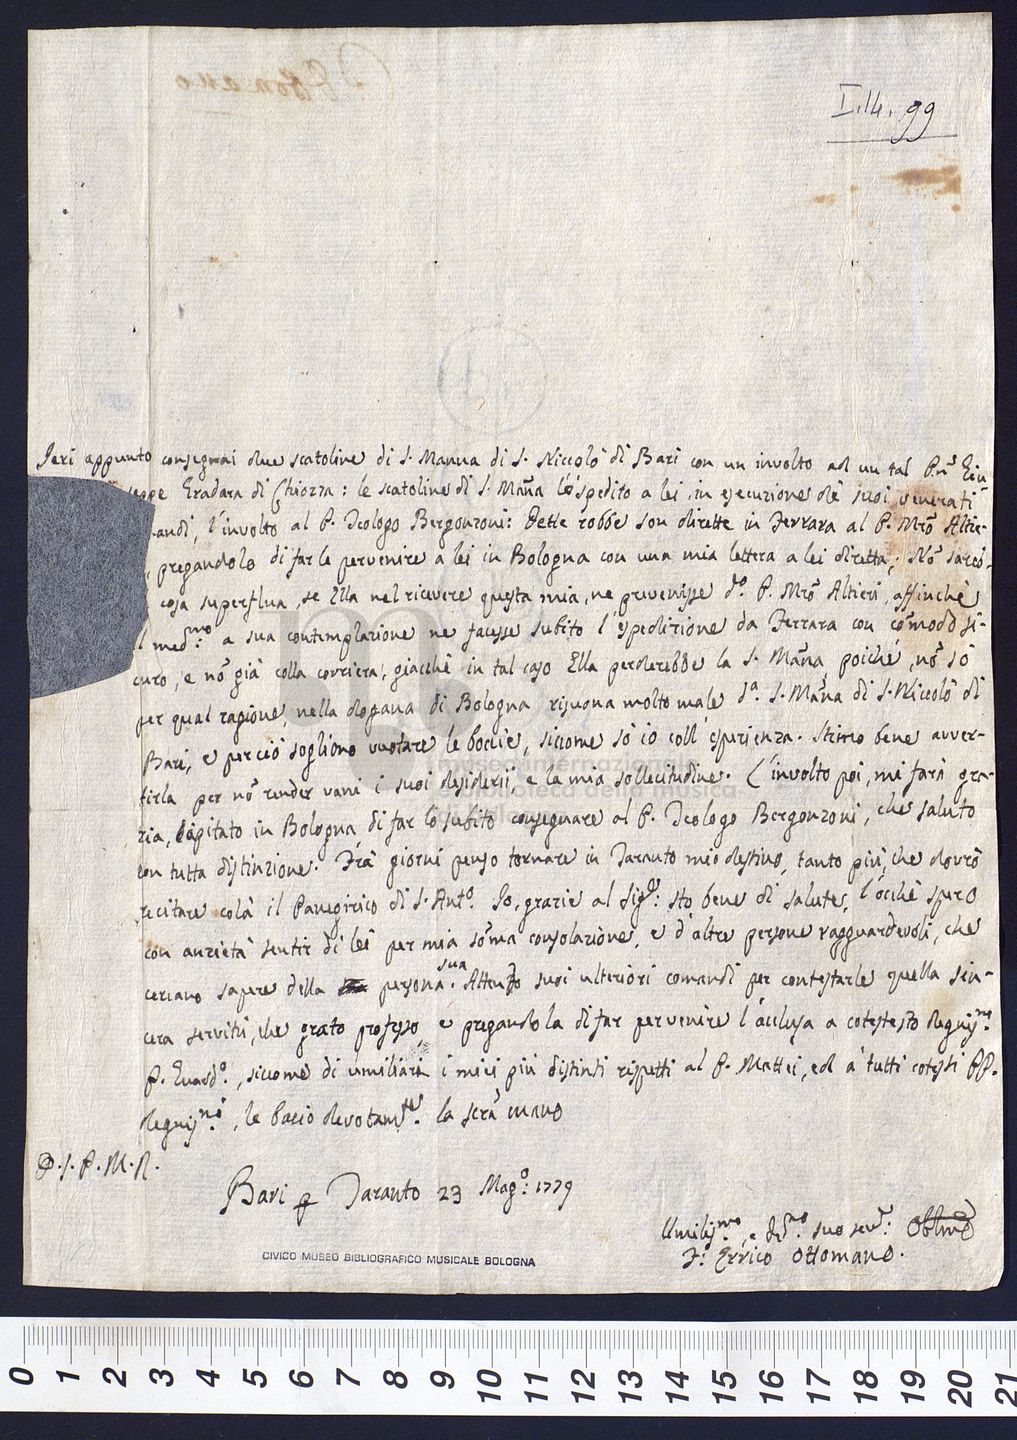 I.14. 99
Jeri appunto consegnai due scatoline di S. Manna di S. Niccolò di Bari con un involto ad un tal Pn̄ Giu
seppe Gradara di Chiozza: le scatoline di S. Mãna l'ò spedito a lei in esecuzione dè suoi venerati
andi, l'involto al P. Teologo Bergonzoni: Dette robbe son dirette in Ferrara al P. Mrõ Altie-
, pregandolo di farle pervenire a lei in Bologna con una mia lettera a lei diretta; Nõ sareb-
cosa superflua, se Ella nel ricevere questa mia, ne prevenisse d.o P. Mrõ Altieri, affinchè
l med.mo a sua contemplazione ne facesse subito l'espedizione da Ferrara con cõmodo si-
curo, e nõ già colla corriera, giacchè in tal caso Ella perderebbe la S. Mãna, poichè, nõ sò
per qual ragione, nella dogana di Bologna risuona molto male d.a S. Mãna di S. Niccolò di
Bari, e perciò sogliono vuotare le boccie, siccome sò io coll'esperienza. Stimo bene avver-
tirla per nõ render vani i suoi desiderii, e la mia sollecitudine. L'involto poi, mi farà gra-
zia, capitato in Bologna, di farlo subito consegnare al P. Teologo Bergonzoni, che saluto
con tutta distinzione. Frà giorni penso tornare in Taranto mio destino, tanto più, che dovrò
recitare colà il Panegirico di S. Ant.o Io, grazie al Sig.e sto bene di salute, l'occhè spero
con anzietà sentir di lei per mia sõma consolazione, e d'altre persone ragguardevoli, che
cercano sapere della persona sua. Attendo suoi ulteriori comandi per contestarle quella sin-
cera servitù, che grato professo, e pregandola di far pervenire l'acclusa a cotestesto Degnis.mo
P. Guard.o, siccome di umiliare i miei più distinti rispetti al P. Mattei, ed a' tutti cotesti PP.
Degnis.mi, le bacio devotam.te la sacra mano
D. S. P. M. R.
Bari p Taranto 23 Mag.o 1779
Umilis.mo, e D.mo suo ser.e Obblmõ
F. Errico Ottomano.
CIVICO MUSEO BIBLIOGRAFICO MUSICALE BOLOGNA
museo internazionale
e biblioteca della musica
di bologna
0 1 2 3 4 5 6 7 8 9 10 11 12 13 14 15 16 17 18 19 20 21